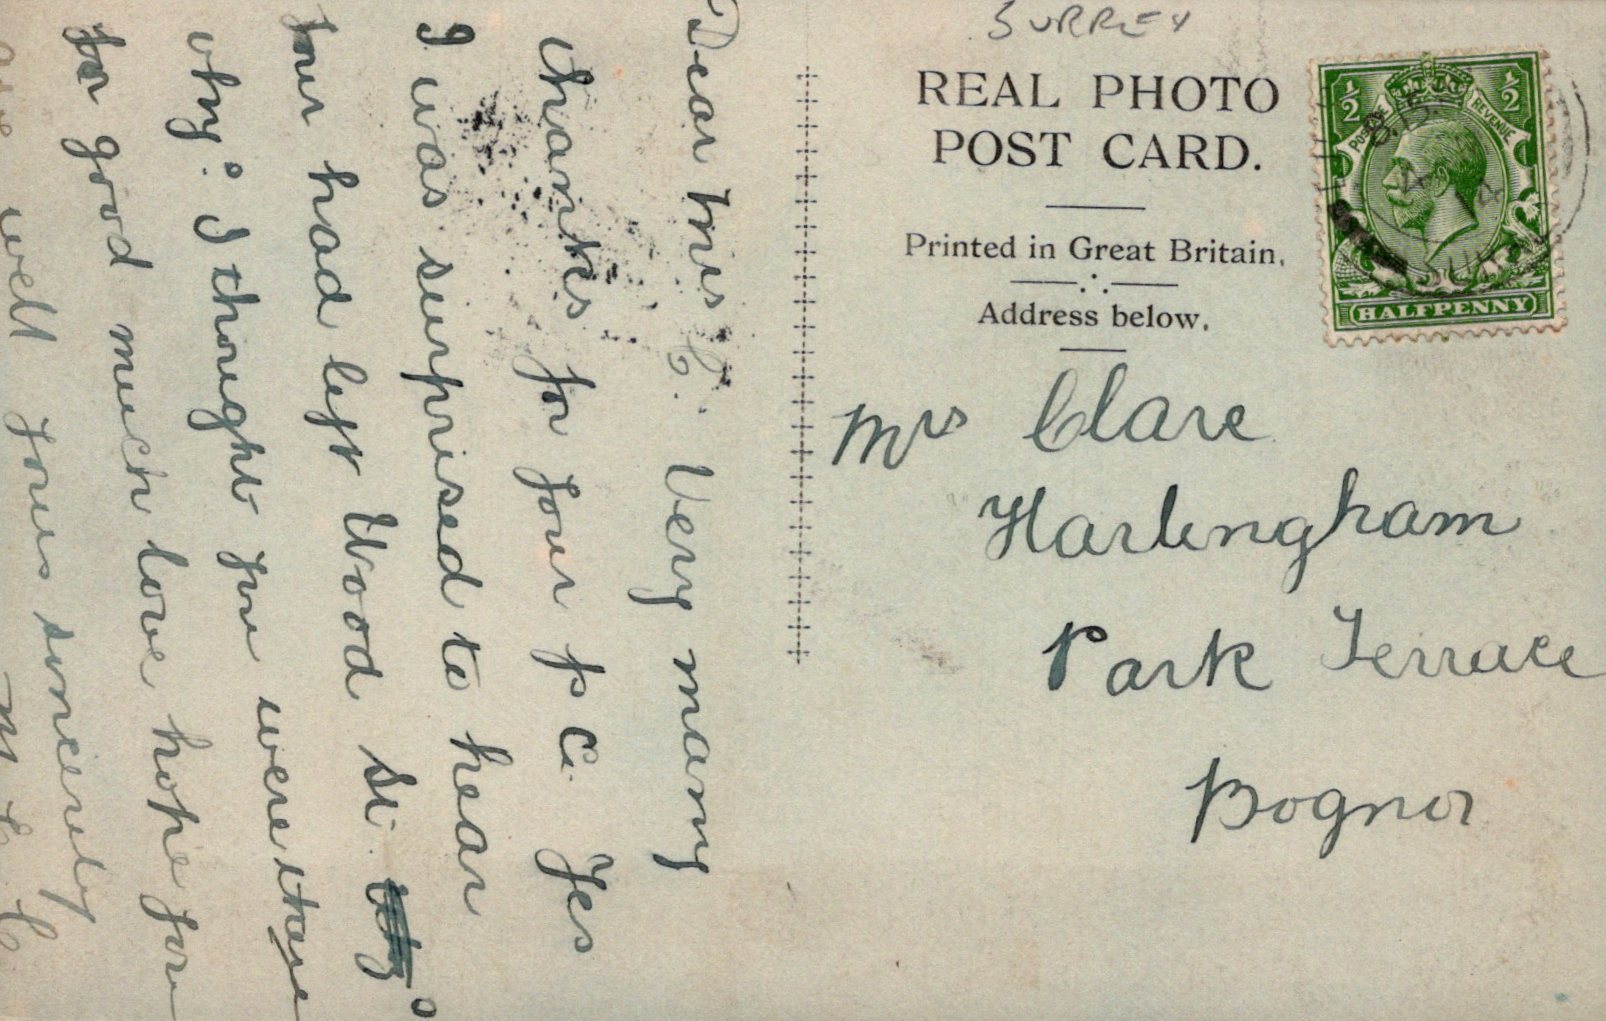 SURREY
REAL PHOTO
POST CARD.
Printed in Great Britain.
Address below.
½ ½
POSTAGE REVENUE
HALFPENNY
8.15
Mrs Clare
Harlingham
Park Terrace
Bognor
Dear Mrs C. Very many
thanks for your p c. Yes
I was surprised to hear
your had left Wood St.
why? I thought you were there
for good much love hope you
are well yours sincerely